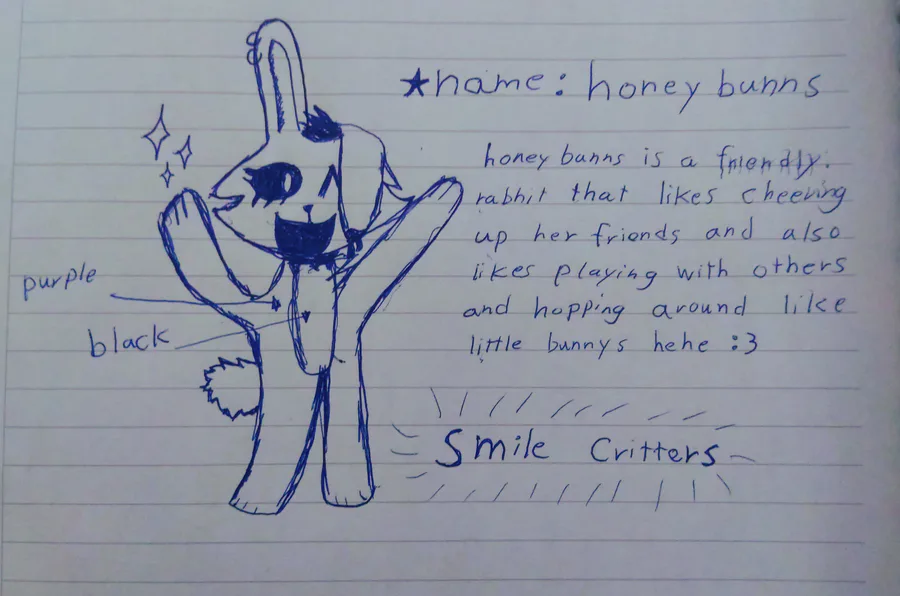 ★name: honey bunns
honey bunns is a friendly.
rabbit that likes cheering
up her friends and also
likes playing with others
and hopping around like
little bunnys hehe :3
purple
black
Smile Critters